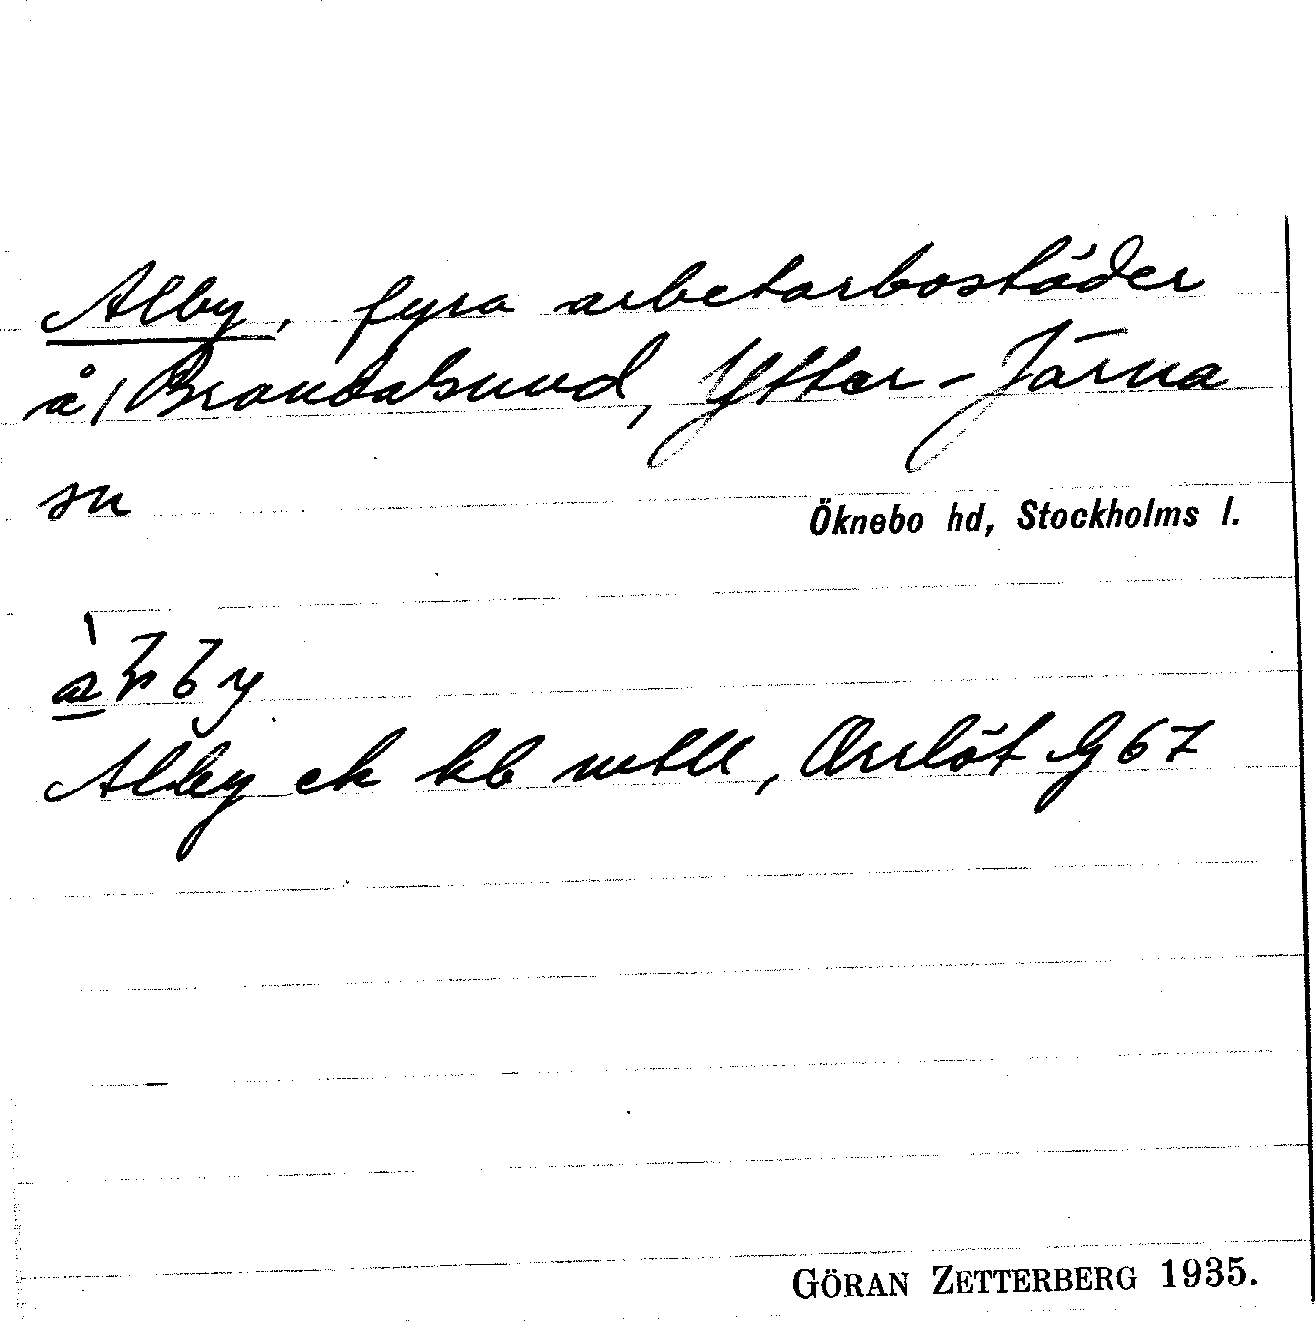 Alby, fyra arbetarbostäder
å Brandalsund, Ytter-Järna
sn
Öknebo hd, Stockholms l.
Alby ek kb
GÖRAN ZETTERBERG 1935.